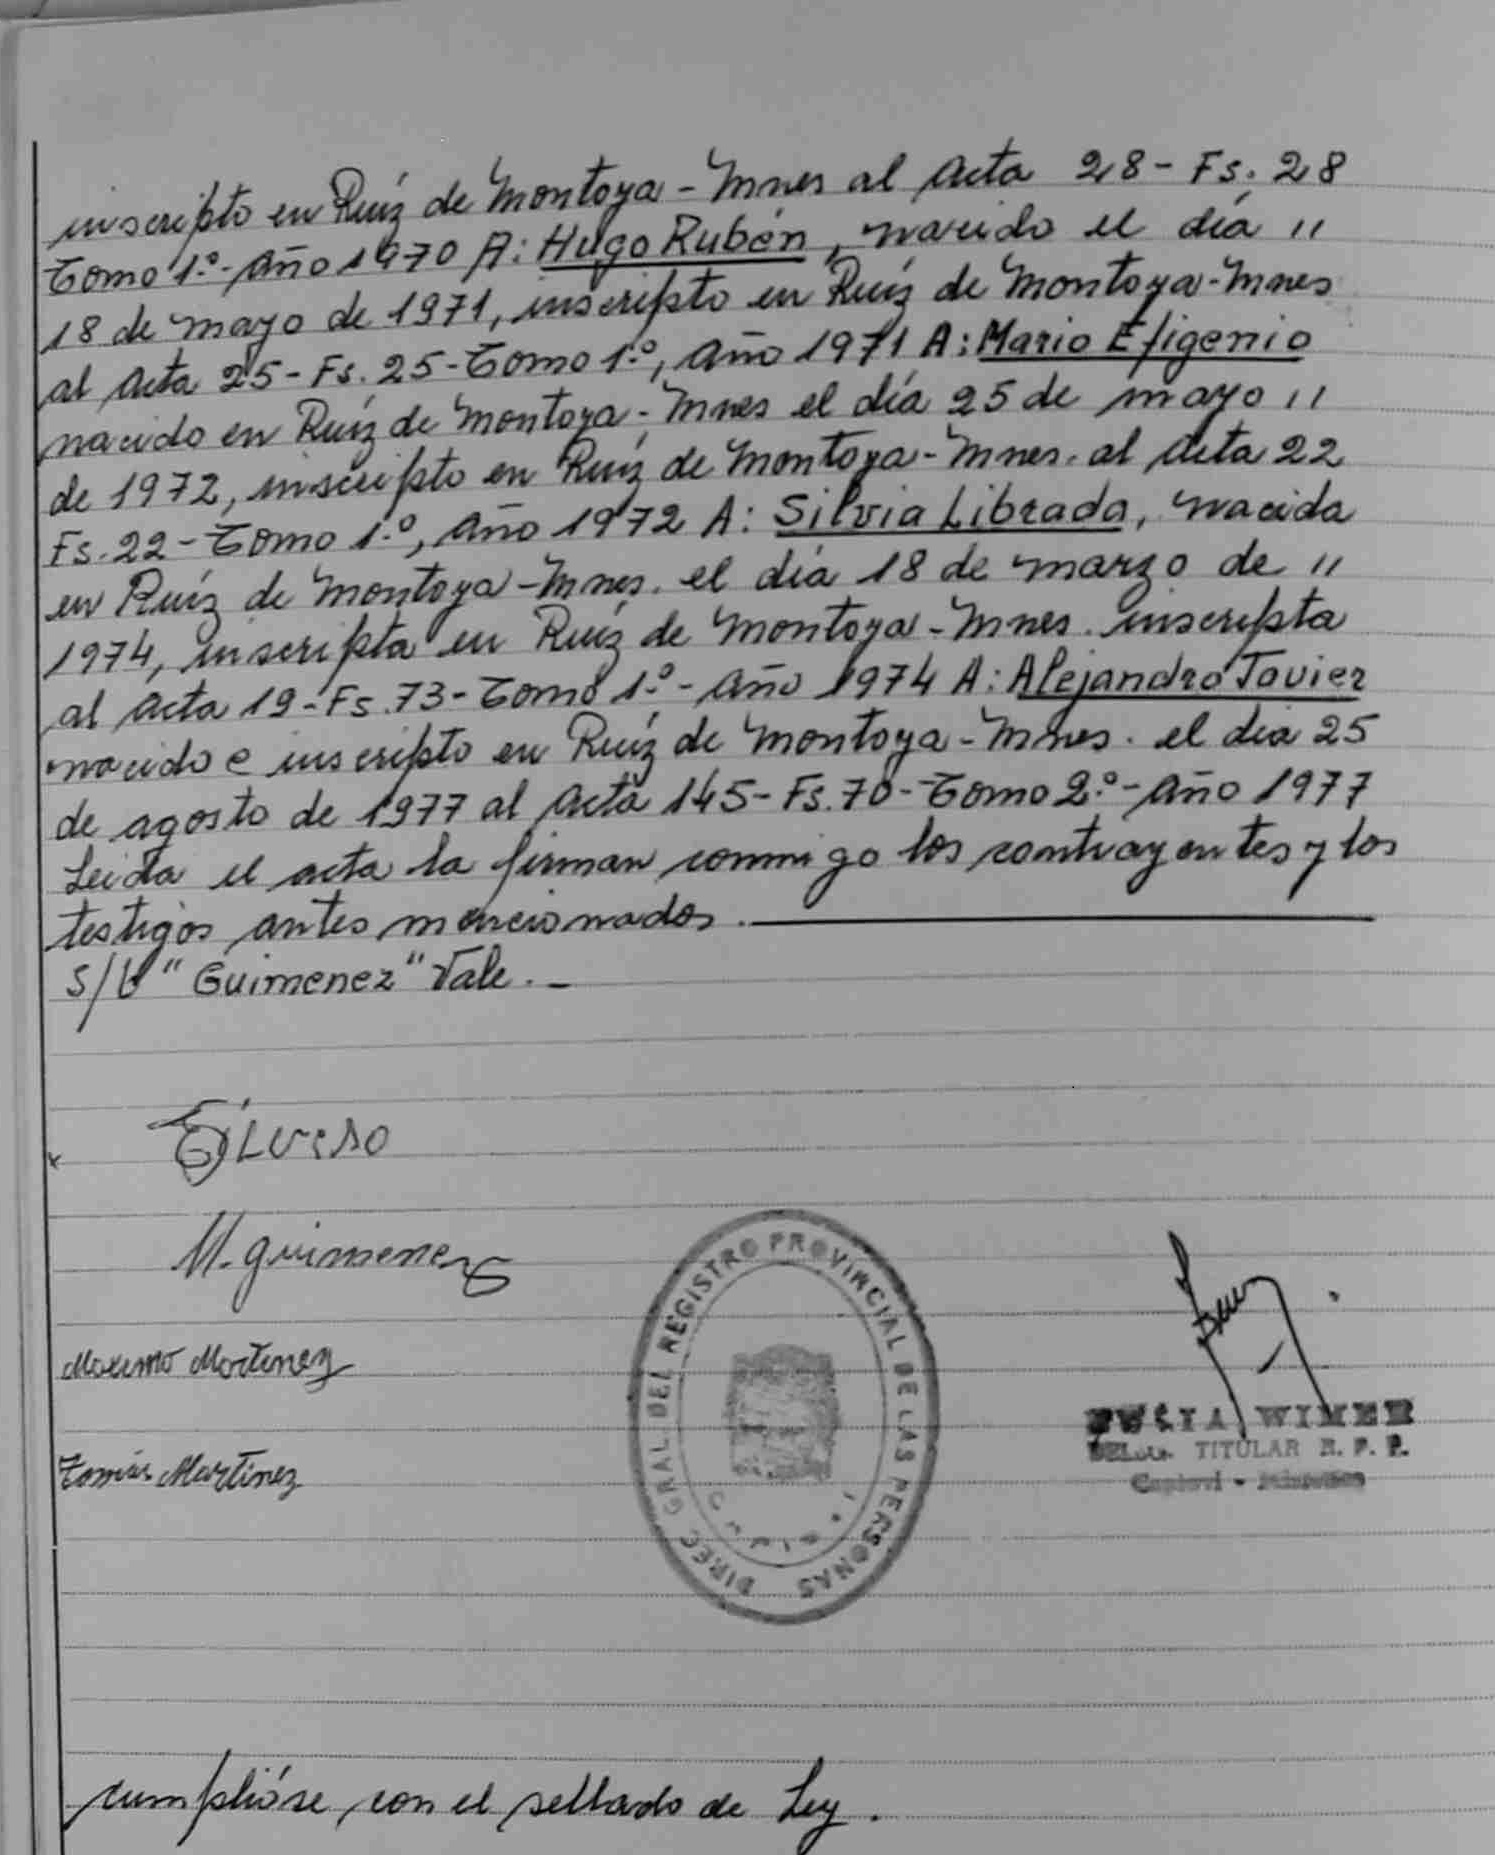 inscripto en Ruíz de Montoya - Mnes al Acta 28 - Fs. 28
Tomo 1º - Año 1970 A: Hugo Rubén, nacido el día "
18 de mayo de 1971, inscripto en Ruíz de Montoya - Mnes
al Acta 25 - Fs. 25 - Tomo 1º, Año 1971 A: Mario Efigenio
nacido en Ruíz de Montoya - Mnes el día 25 de mayo "
de 1972, inscripto en Ruíz de Montoya - Mnes. al Acta 22
Fs. 22 - Tomo 1º, Año 1972 A: Silvia Librada, nacida
en Ruíz de Montoya - Mnes. el día 18 de marzo de "
1974, inscripta en Ruíz de Montoya - Mnes. inscripta
al Acta 19 - Fs. 73 - Tomo 1º - Año 1974 A: Alejandro Javier
nacido e inscripto en Ruíz de Montoya - Mnes. el día 25
de agosto de 1977 al Acta 145 - Fs. 70 - Tomo 2º - Año 1977
Leida el acta la firman conmigo los contrayentes y los
testigos antes mencionados.
S/b "Guimenez" Vale. -
M. guimenez
Maximo Martinez
Tomás Martinez
DIREC GRAL DEL REGISTRO PROVINCIAL DE LAS PERSONAS
WINER
TITULAR R. P. P.
Capiovi - Misiones
cumplióse con el sellado de Ley.